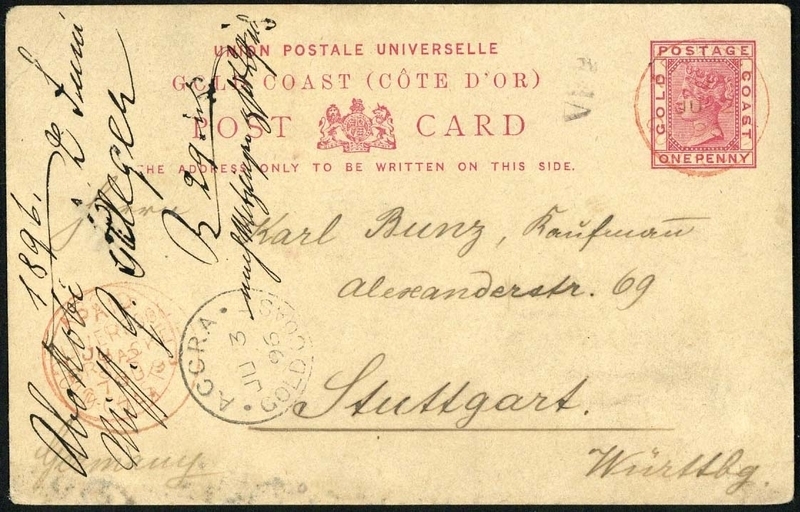 UNION POSTALE UNIVERSELLE
GOLD COAST (CÔTE D'OR)
POST CARD
THE ADDRESS ONLY TO BE WRITTEN ON THIS SIDE.
POSTAGE
GOLD
COAST
ONE PENNY
VIA
Herrn
Karl Bunz, Kaufmann
Alexanderstr. 69
Stuttgart.
Württbg.
Germany.
ACCRA
JU 3
96
GOLD COAST
PAID
Abokobi 2 Juni
1896.
Miss. G.